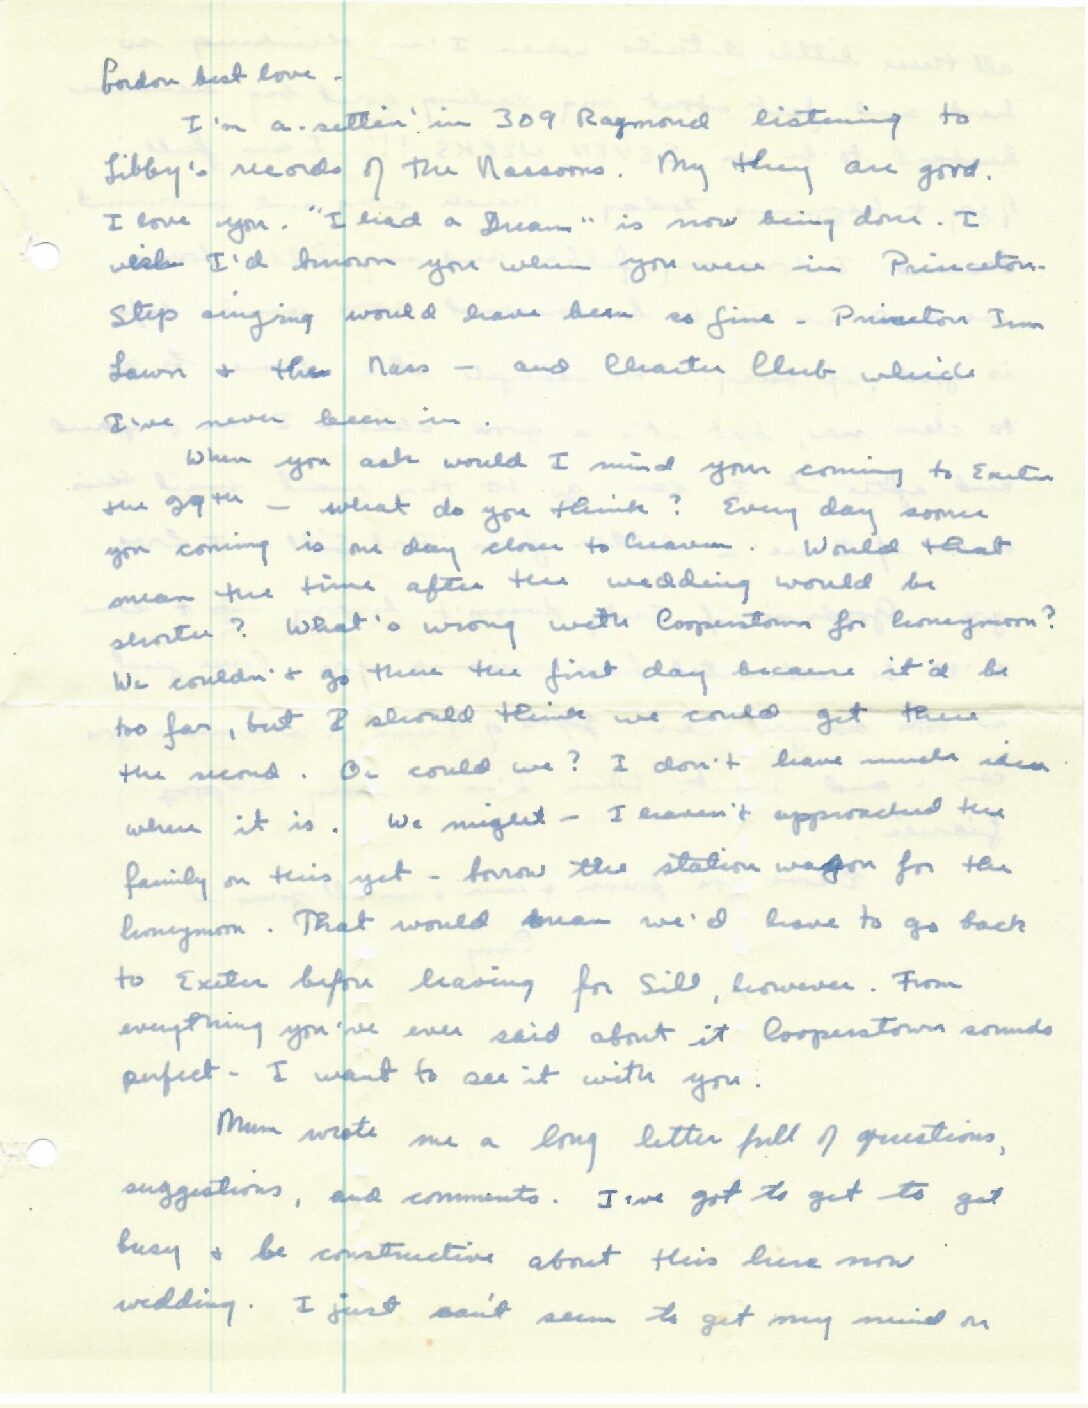 Gordon best love -
I'm a-settin' in 309 Raymond listening to
Libby's records of the Nassoons. My they are good.
I love you. "I had a Dream" is now being done. I
wish I'd known you when you were in Princeton.
Step singing would have been so fine - Princeton Inn
Lawn & the Nass - and Charter Club which
I've never been in.
When you ask would I mind your coming to Exeter
the 29th - what do you think? Every day sooner
you coming is one day closer to heaven. Would that
mean the time after the wedding would be
shorter? What's wrong with Cooperstown for honeymoon?
We couldn't go there the first day because it'd be
too far, but I should think we could get there
the second. Or could we? I don't have much idea
where it is. We might - I haven't approached the
family on this yet - borrow the station wagon for the
honeymoon. That would mean we'd have to go back
to Exeter before leaving for Sill, however. From
everything you've ever said about it Cooperstown sounds
perfect - I want to see it with you.
Mum wrote me a long letter full of questions,
suggestions, and comments. I've got to get to get
busy & be constructive about this here now
wedding. I just can't seem to get my mind on